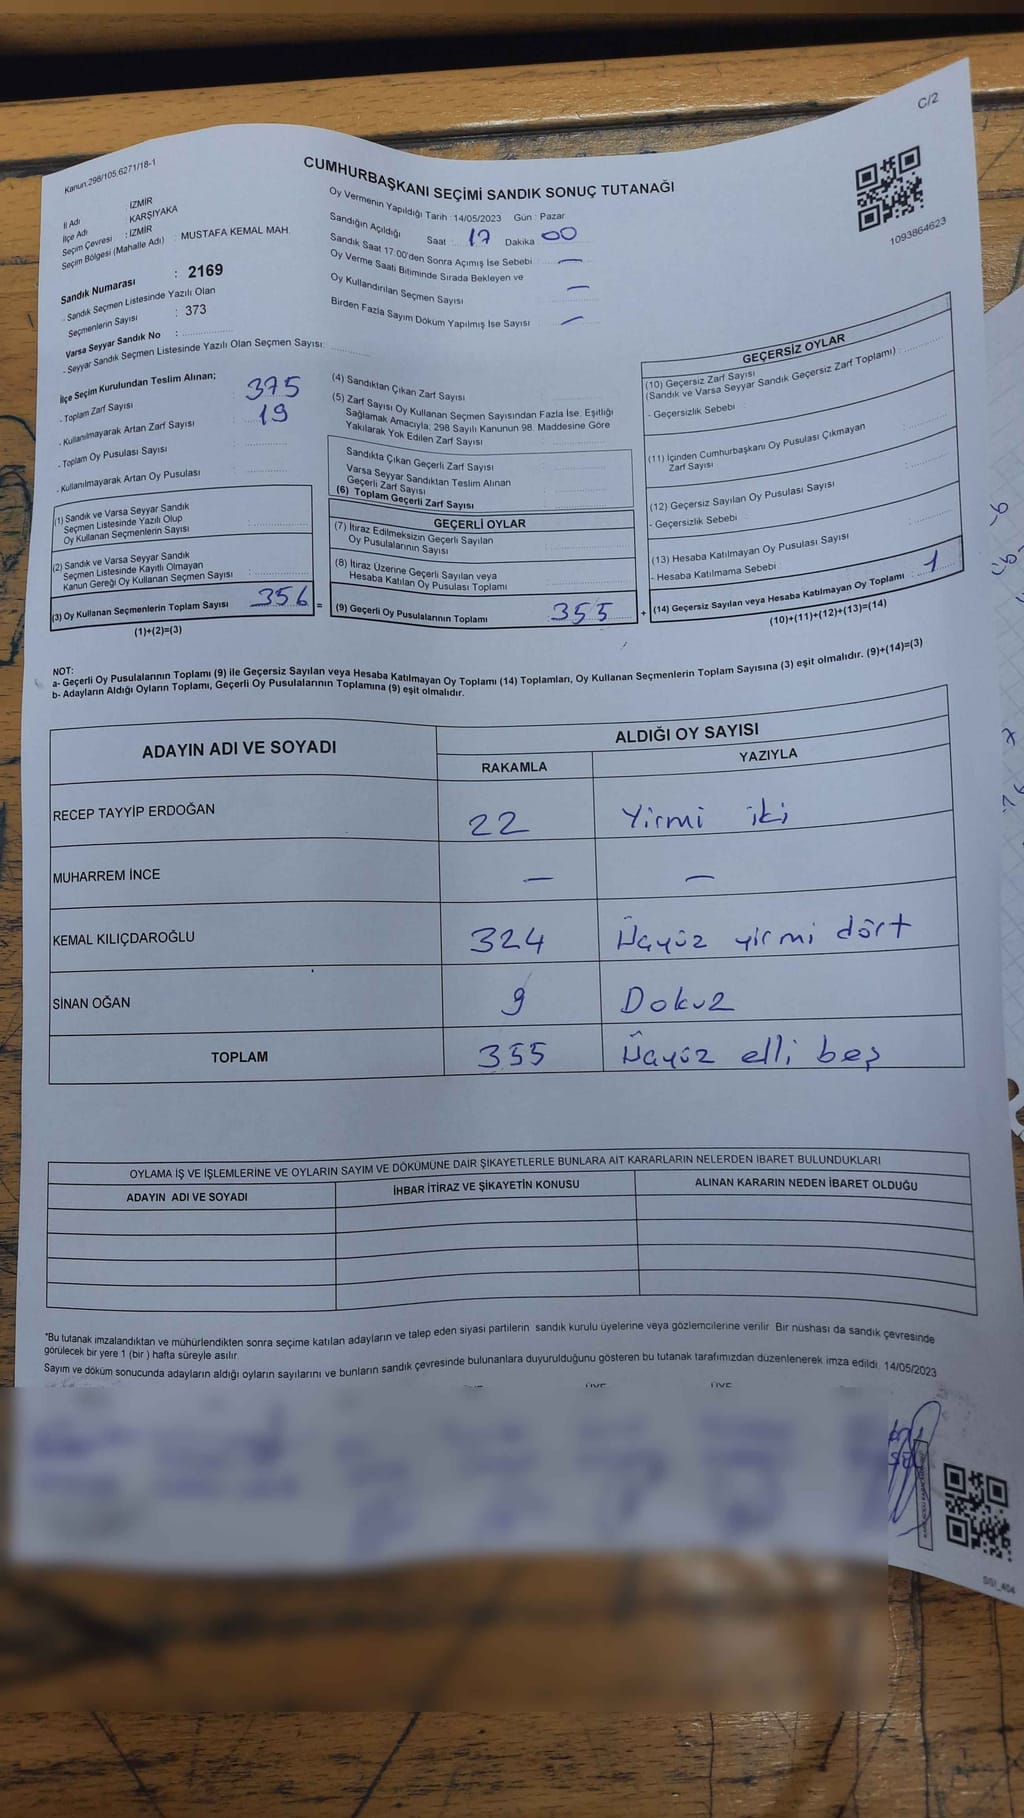 C/2
Kanun.298/105,6271/18-1
CUMHURBAŞKANI SEÇİMİ SANDIK SONUÇ TUTANAĞI
1093864623
İl Adı : İZMİR
İlçe Adı : KARŞIYAKA
Seçim Çevresi : İZMİR
Seçim Bölgesi (Mahalle Adı) : MUSTAFA KEMAL MAH.
Sandık Numarası : 2169
- Sandık Seçmen Listesinde Yazılı Olan
Seçmenlerin Sayısı : 373
Varsa Seyyar Sandık No :
- Seyyar Sandık Seçmen Listesinde Yazılı Olan Seçmen Sayısı:
Oy Vermenin Yapıldığı Tarih : 14/05/2023 Gün : Pazar
Sandığın Açıldığı Saat : 17 Dakika 00
Sandık Saat 17:00'den Sonra Açımış İse Sebebi : —
Oy Verme Saati Bitiminde Sırada Bekleyen ve
Oy Kullandırılan Seçmen Sayısı : —
Birden Fazla Sayım Döküm Yapılmış İse Sayısı : —
İlçe Seçim Kurulundan Teslim Alınan;
- Toplam Zarf Sayısı : 375
- Kullanılmayarak Artan Zarf Sayısı : 19
- Toplam Oy Pusulası Sayısı :
- Kullanılmayarak Artan Oy Pusulası :
(1) Sandık ve Varsa Seyyar Sandık
Seçmen Listesinde Yazılı Olup
Oy Kullanan Seçmenlerin Sayısı
(2) Sandık ve Varsa Seyyar Sandık
Seçmen Listesinde Kayıtlı Olmayan
Kanun Gereği Oy Kullanan Seçmen Sayısı :
(3) Oy Kullanan Seçmenlerin Toplam Sayısı : 356 =
(1)+(2)=(3)
(4) Sandıktan Çıkan Zarf Sayısı
(5) Zarf Sayısı Oy Kullanan Seçmen Sayısından Fazla İse, Eşitliği
Sağlamak Amacıyla; 298 Sayılı Kanunun 98. Maddesine Göre
Yakılarak Yok Edilen Zarf Sayısı
Sandıkta Çıkan Geçerli Zarf Sayısı
Varsa Seyyar Sandıktan Teslim Alınan
Geçerli Zarf Sayısı
(6) Toplam Geçerli Zarf Sayısı
GEÇERLİ OYLAR
(7) İtiraz Edilmeksizin Geçerli Sayılan
Oy Pusulalarının Sayısı
(8) İtiraz Üzerine Geçerli Sayılan veya
Hesaba Katılan Oy Pusulası Toplamı
(9) Geçerli Oy Pusulalarının Toplamı : 355 +
GEÇERSİZ OYLAR
(10) Geçersiz Zarf Sayısı
(Sandık ve Varsa Seyyar Sandık Geçersiz Zarf Toplamı) :
- Geçersizlik Sebebi :
(11) İçinden Cumhurbaşkanı Oy Pusulası Çıkmayan
Zarf Sayısı :
(12) Geçersiz Sayılan Oy Pusulası Sayısı
- Geçersizlik Sebebi :
(13) Hesaba Katılmayan Oy Pusulası Sayısı
- Hesaba Katılmama Sebebi :
(14) Geçersiz Sayılan veya Hesaba Katılmayan Oy Toplamı : 1
(10)+(11)+(12)+(13)=(14)
NOT:
a- Geçerli Oy Pusulalarının Toplamı (9) ile Geçersiz Sayılan veya Hesaba Katılmayan Oy Toplamı (14) Toplamları, Oy Kullanan Seçmenlerin Toplam Sayısına (3) eşit olmalıdır. (9)+(14)=(3)
b- Adayların Aldığı Oyların Toplamı, Geçerli Oy Pusulalarının Toplamına (9) eşit olmalıdır.
ADAYIN ADI VE SOYADI ALDIĞI OY SAYISI
RAKAMLA YAZIYLA
RECEP TAYYİP ERDOĞAN 22 Yirmi iki
MUHARREM İNCE — —
KEMAL KILIÇDAROĞLU 324 Üçyüz yirmi dört
SİNAN OĞAN 9 Dokuz
TOPLAM 355 Üçyüz elli beş
OYLAMA İŞ VE İŞLEMLERİNE VE OYLARIN SAYIM VE DÖKÜMÜNE DAİR ŞİKAYETLERLE BUNLARA AİT KARARLARIN NELERDEN İBARET BULUNDUKLARI
ADAYIN ADI VE SOYADI İHBAR İTİRAZ VE ŞİKAYETİN KONUSU ALINAN KARARIN NEDEN İBARET OLDUĞU
*Bu tutanak imzalandıktan ve mühürlendikten sonra seçime katılan adayların ve talep eden siyasi partilerin sandık kurulu üyelerine veya gözlemcilerine verilir. Bir nüshası da sandık çevresinde
görülecek bir yere 1 (bir ) hafta süreyle asılır.
Sayım ve döküm sonucunda adayların aldığı oyların sayılarını ve bunların sandık çevresinde bulunanlara duyurulduğunu gösteren bu tutanak tarafımızdan düzenlenerek imza edildi. 14/05/2023